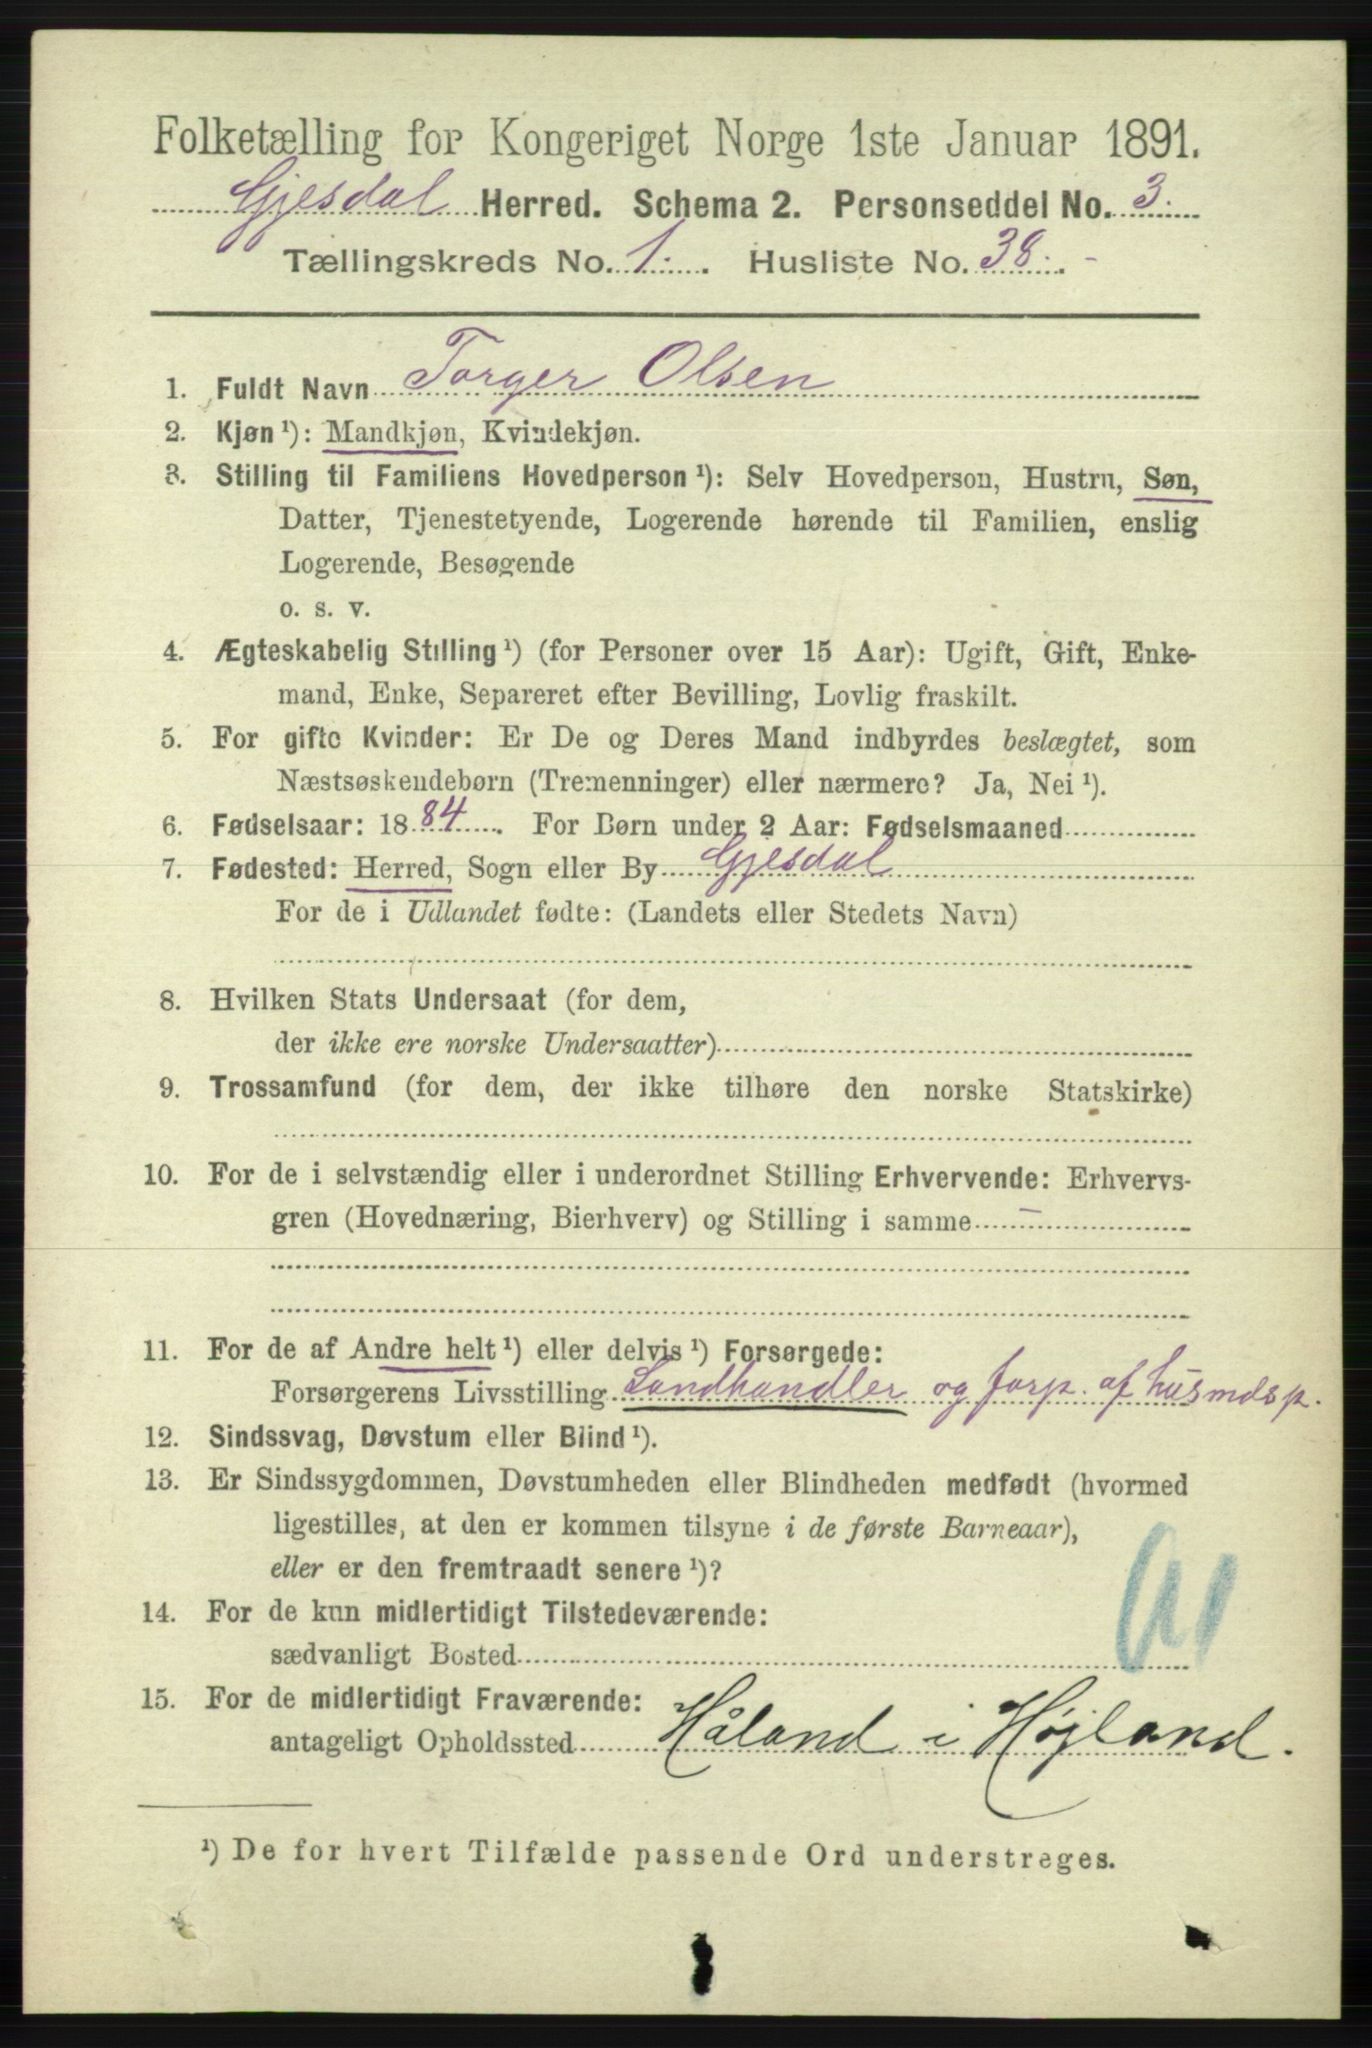 Folketælling for Kongeriget Norge 1ste Januar 1891.
Gjesdal Herred. Schema 2. Personseddel No. 3.
Tællingskreds No. 1. Husliste No. 38.
1. Fuldt Navn Torger Olsen
2. Kjøn ¹): Mandkjøn, Kvindekjøn.
3. Stilling til Familiens Hovedperson ¹): Selv Hovedperson, Hustru, Søn,
Datter, Tjenestetyende, Logerende hørende til Familien, enslig
Logerende, Besøgende
o. s. v.
4. Ægteskabelig Stilling ¹) (for Personer over 15 Aar): Ugift, Gift, Enke-
mand, Enke, Separeret efter Bevilling, Lovlig fraskilt.
5. For gifte Kvinder: Er De og Deres Mand indbyrdes beslægtet, som
Næstsøskendebørn (Tremenninger) eller nærmere? Ja, Nei ¹).
6. Fødselsaar: 1884. For Børn under 2 Aar: Fødselsmaaned
7. Fødested: Herred, Sogn eller By Gjesdal
For de i Udlandet fødte: (Landets eller Stedets Navn)
8. Hvilken Stats Undersaat (for dem,
der ikke ere norske Undersaatter)
9. Trossamfund (for dem, der ikke tilhøre den norske Statskirke)
10. For de i selvstændig eller i underordnet Stilling Erhvervende: Erhvervs-
gren (Hovednæring, Bierhverv) og Stilling i samme –
11. For de af Andre helt ¹) eller delvis ¹) Forsørgede:
Forsørgerens Livsstilling Landhandler og forp. af husmdsp.
12. Sindssvag, Døvstum eller Blind ¹).
13. Er Sindssygdommen, Døvstumheden eller Blindheden medfødt (hvormed
ligestilles, at den er kommen tilsyne i de første Barneaar),
eller er den fremtraadt senere ¹)?
14. For de kun midlertidigt Tilstedeværende:
sædvanligt Bosted
15. For de midlertidigt Fraværende:
antageligt Opholdssted Håland i Højland.
¹) De for hvert Tilfælde passende Ord understreges.